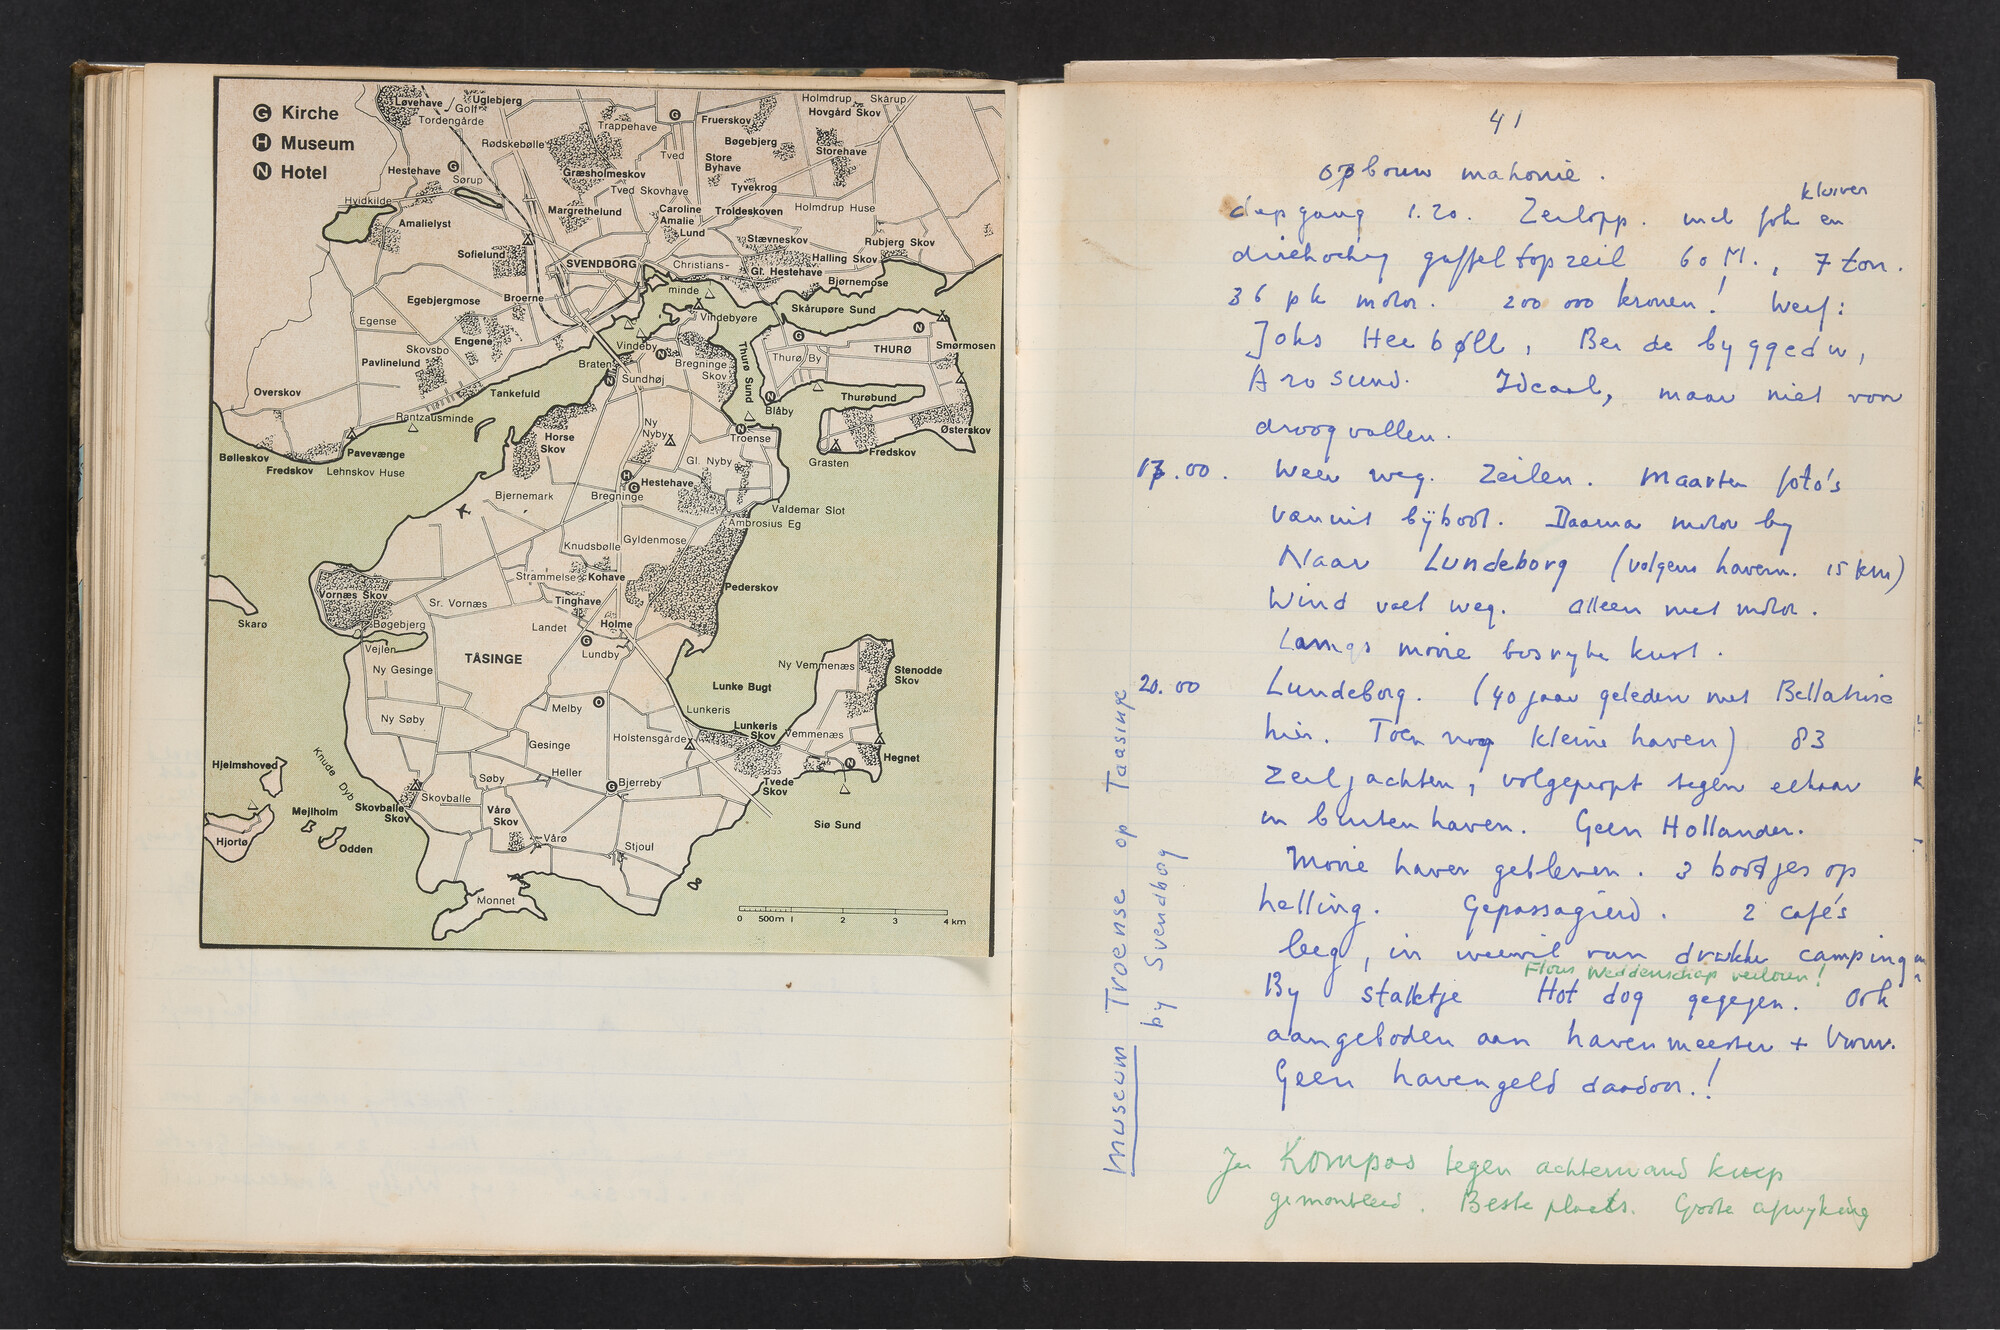 Kirche
Museum
Hotel
Løvehave
Uglebjerg
Golf
Tordengårde
Rødskebølle
Trappehave
Fruerskov
Holmdrup
Skårup
Hovgård Skov
Bøgebjerg
Storehave
Hestehave
Sørup
Græsholmeskov
Tved
Store
Byhave
Tved Skovhave
Tyvekrog
Hvidkilde
Amalielyst
Margrethelund
Caroline
Amalie
Lund
Troldeskoven
Holmdrup Huse
Sofielund
SVENDBORG
Stævneskov
Rubjerg Skov
Halling Skov
Christians-
minde
Gl. Hestehave
Bjørnemose
Egebjergmose
Broerne
Vindebyøre
Skårupøre Sund
Egense
Engene
Skovsbo
Pavlinelund
Vindeby
Braten
Bregninge
Skov
Thurø Sund
Thurø By
THURØ
Smørmosen
Sundhøj
Overskov
Tankefuld
Rantzausminde
Blåby
Thurøbund
Østerskov
Bølleskov
Fredskov
Pavevænge
Lehnskov Huse
Horse
Skov
Ny
Nyby
Troense
Gl. Nyby
Grasten
Fredskov
Bjernemark
Bregninge
Hestehave
Valdemar Slot
Ambrosius Eg
Knudsbølle
Gyldenmose
Strammelse
Kohave
Pederskov
Vornæs Skov
Sr. Vornæs
Tinghave
Skarø
Bøgebjerg
Landet
Holme
Vejlen
Lundby
TÅSINGE
Ny Gesinge
Ny Vemmenæs
Stenodde
Skov
Lunke Bugt
Melby
Lunkeris
Ny Søby
Gesinge
Holstensgårde
Lunkeris
Skov
Vemmenæs
Hegnet
Hjelmshoved
Knude Dyb
Søby
Heller
Bjerreby
Tvede
Skov
Skovballe
Skovballe
Skov
Mejlholm
Vårø
Skov
Siø Sund
Hjortø
Odden
Vårø
Stjoul
Monnet
0 500m 1 2 3 4 km
41
opbouw mahonie.
kluiver
diepgang 1.20. Zeilopp. met fok en
driehoekig gaffeltopzeil 60 M., 7 ton.
36 pk motor. 200 000 kronen! Werf:
Johs Heebøll,
Arosund. Ideaal, maar niet voor
droogvallen.
17.00. Weer weg. Zeilen. Maarten foto's
vanuit bijboot. Daarna motor by
Naar Lundeborg (volgens havenm. 15 km)
Wind valt weg. Alleen met motor.
Langs mooie bosryke kust.
20.00 Lundeborg. (40 jaar geleden met Bellatrise
hier. Toen nog kleine haven) 83
zeiljachten, volgepropt tegen elkaar
in buitenhaven. Geen Hollander.
Mooie haven gebleven. 3 bootjes op
helling. Gepassagierd. 2 café's
leeg, in weerwil van drukke camping
Floris Weddenschap verloren!
By stalletje Hot dog gegegen. Ook
aangeboden aan havenmeester + Vrouw.
Geen havengeld daardoor.!
Museum Troense op Taasinge
by Svendborg
Ja Kompas tegen achterwand kuip
gemonteerd. Beste plaats. Grote afwyking